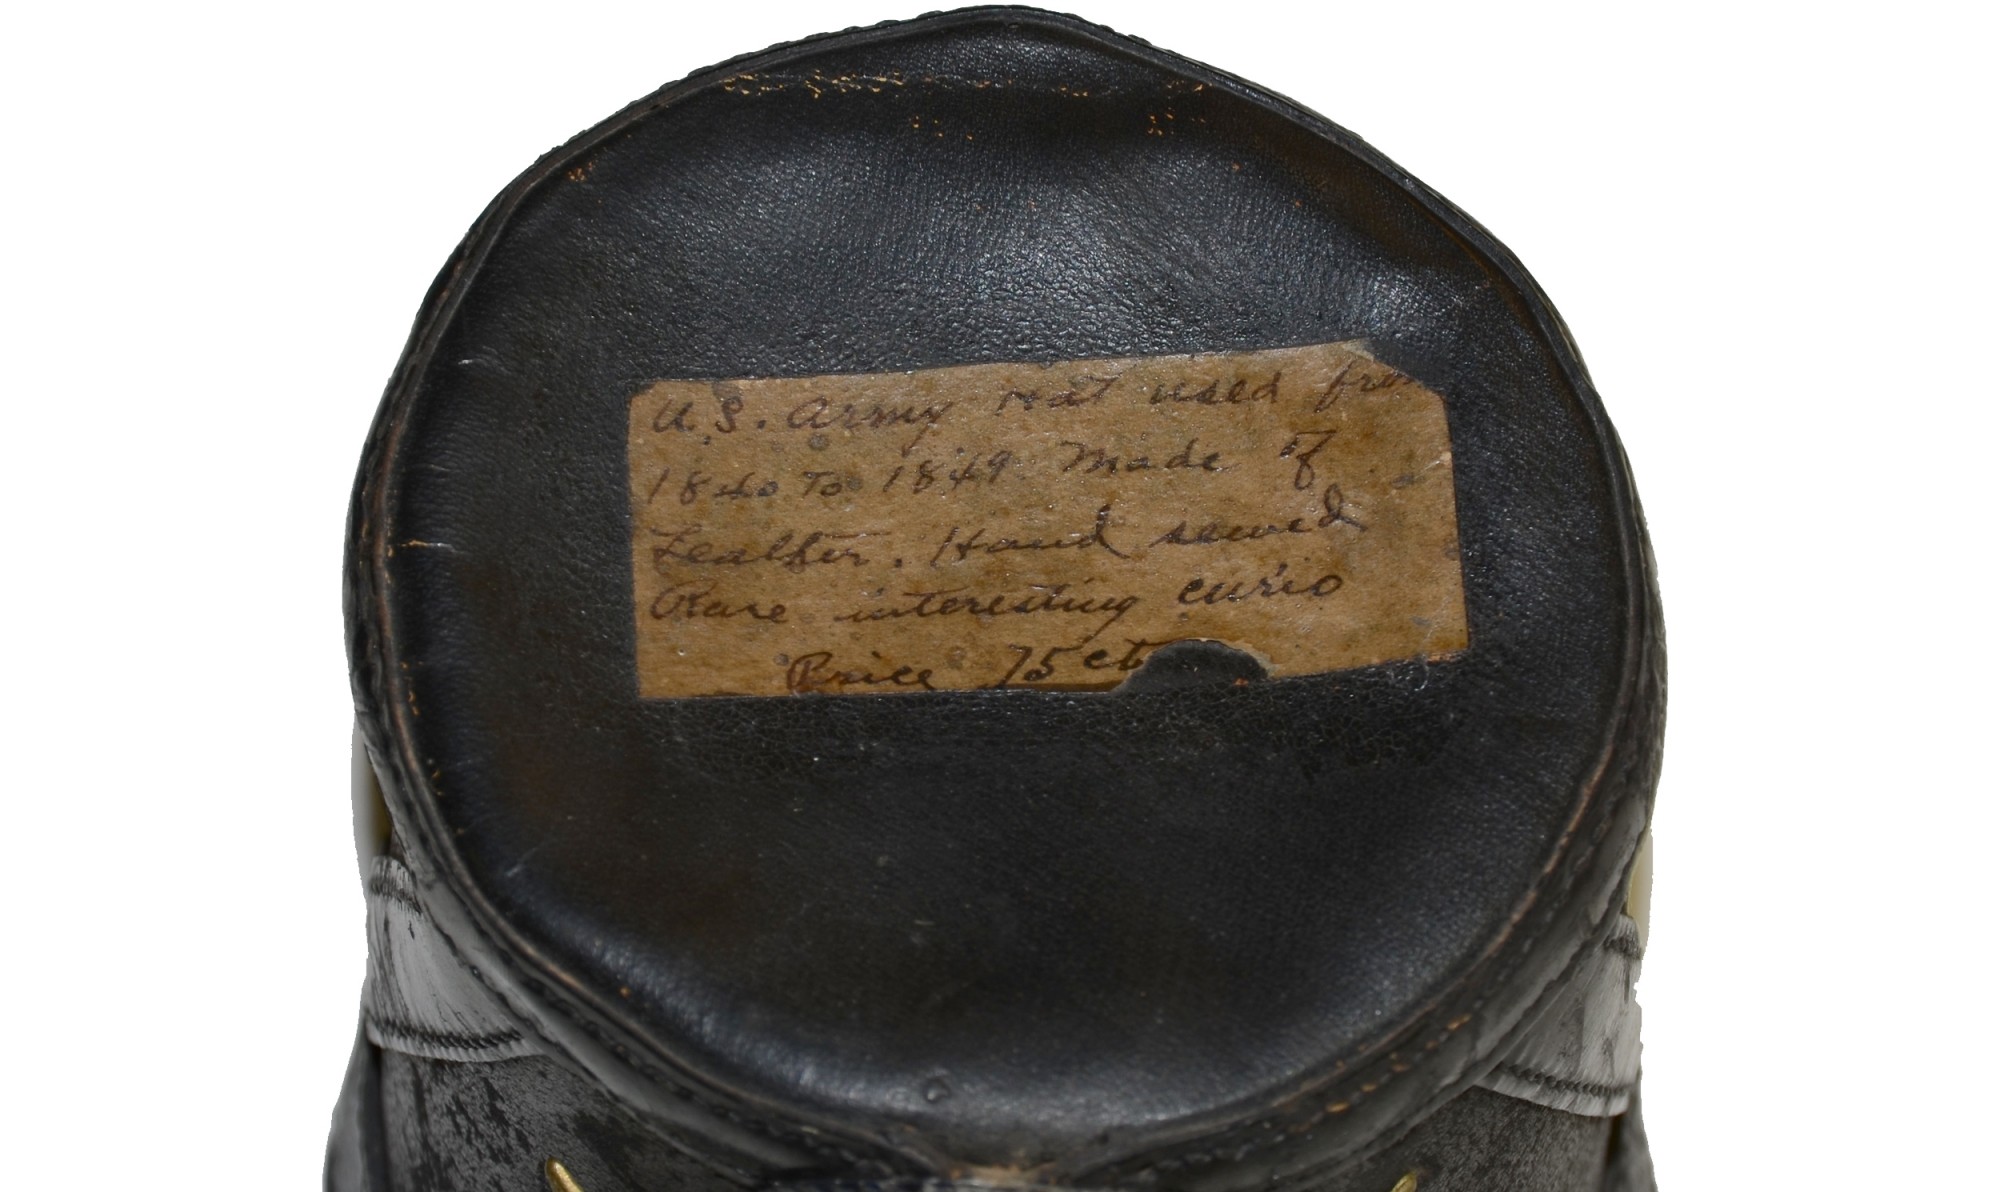 U.S. Army Hat used from
1840 To 1849 Made of
Leather. Hand sewed
Rare interesting curio
Price 75 cts